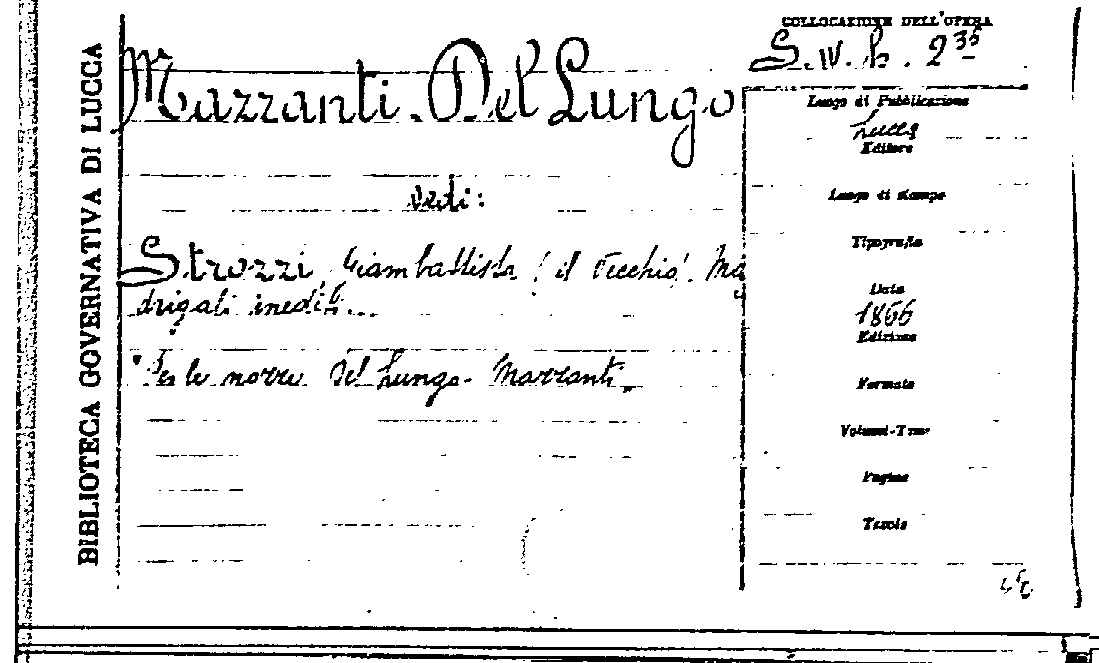 BIBLIOTECA GOVERNATIVA DI LUCCA
COLLOCAZIONE DELL'OPERA
S.W.h. 2 35
Mazzanti - Del Lungo
vedi:
Strozzi, Giambattista (il Vecchio). Ma
drigali inediti...
"Per le nozze Del Lungo - Mazzanti"
Luogo di Pubblicazione
Lucca
Editore
Luogo di stampa
Tipografia
Data
1866
Edizione
Formato
Volumi-Tomi
Pagine
Tavole